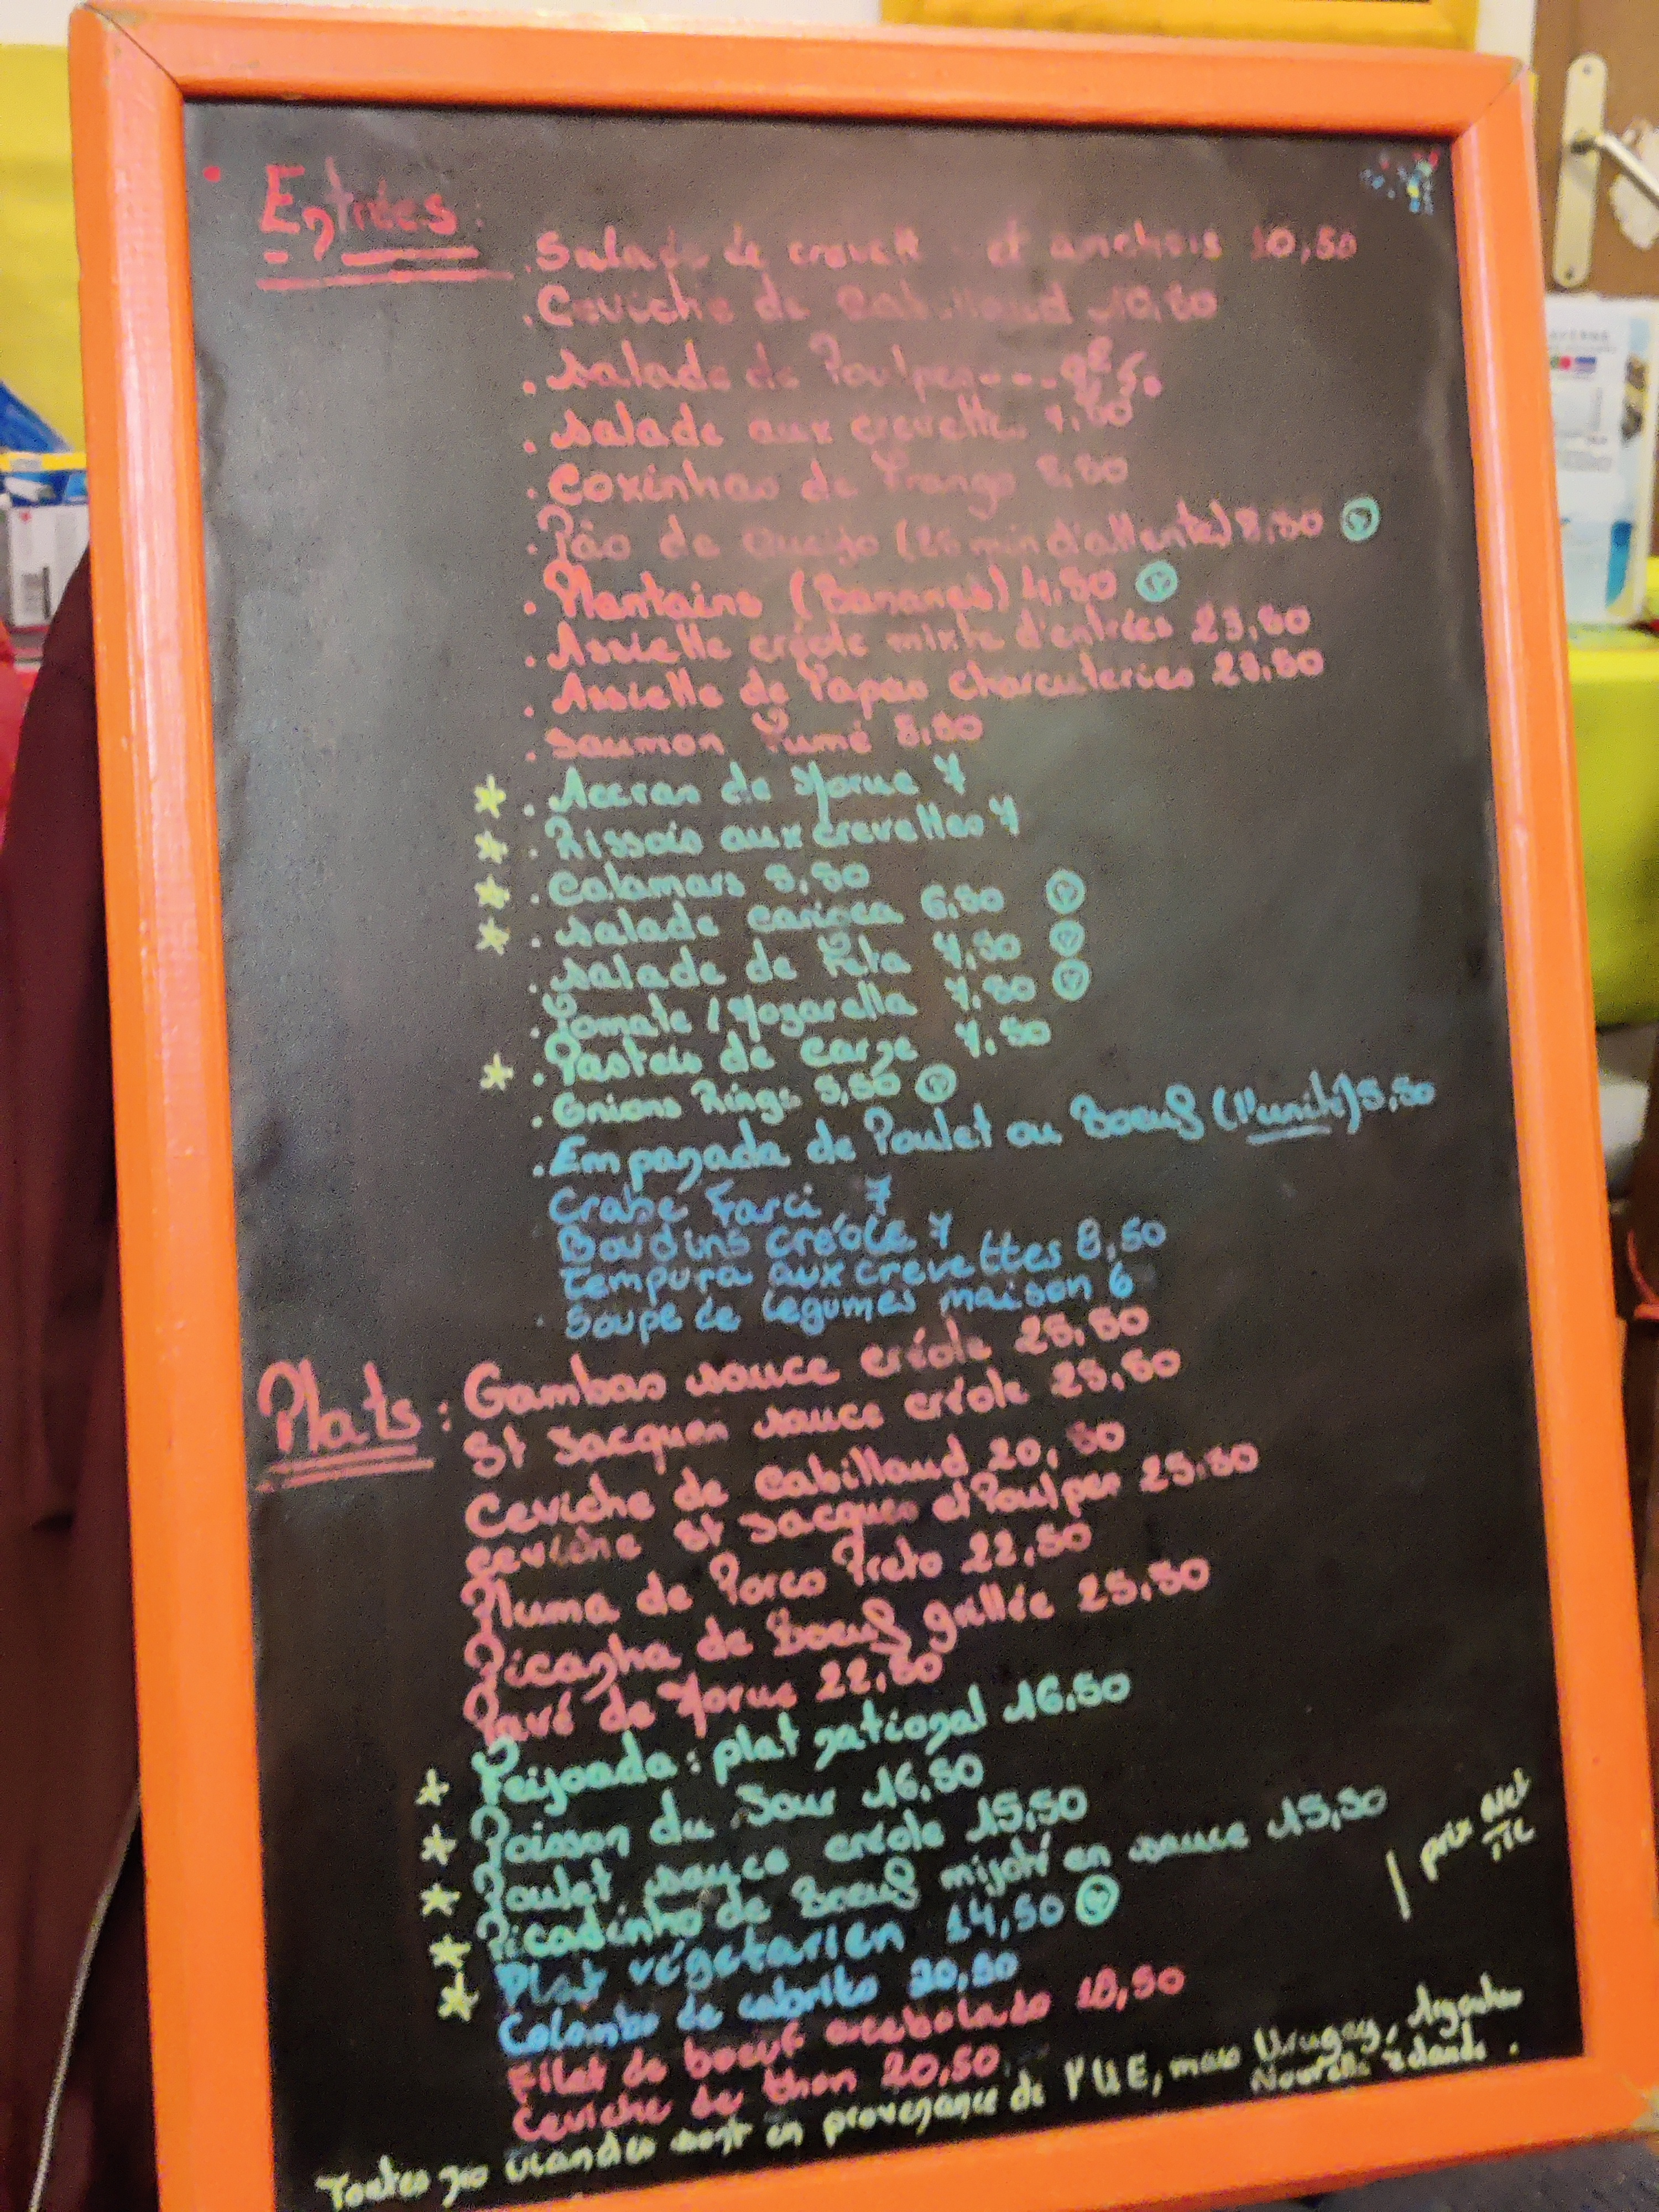 Entrées :
. Salade de et anchois 10,50
. Ceviche de Cabillaud 10,50
. Salade de Poulpes---9€50
. Salade aux crevettes 7,50
. Coxinhas de Frango 8,50
. Pão de queijo (25 min d'attente) 8,50 V
. Plantains (Bananes) 4,50 V
. Assiette créole mixte d'entrées 23,50
. Assiette de Papas charcuteries 23,50
. Saumon Fumé 8,50
* . Accras de Morue 7
* . Rissois aux crevettes 7
* . Calamars 8,50
* . Salade carioca 6,50 V
. Salade de Feta 7,50 V
. Tomate / Mozarella 7.50 V
* . Pasteis de carne 7.50
. Onions Rings 5,50 V
. Empanada de Poulet ou Boeuf (l'unité) 5,50
Crabe Farci 7
Boudins créole 7
Tempura aux crevettes 8,50
. Soupe de légumes maison 6
Plats : Gambas sauce créole 25,50
St Jacques sauce créole 25,50
Ceviche de Cabillaud 20,50
ceviche St Jacques et Poulpes 25.50
Pluma de Porco Preto 22,50
Picanha de Boeuf grillée 25.50
Pavé de Morue 22,50
* Feijoada : plat national 16.50
* Poisson du Jour 16,50
* Poulet sauce créole 15,50
* Picadinho de Boeuf mijoté en sauce 15,50
* Plat végétarien 14,50 V
Colombo de cabrito 20,50
Filet de boeuf acebolado 18,50
Ceviche de thon 20,50
| prix Net
TTC
Toutes nos viandes sont en provenance de l'UE, mais Urugay, Argentine
Nouvelle Zelande.